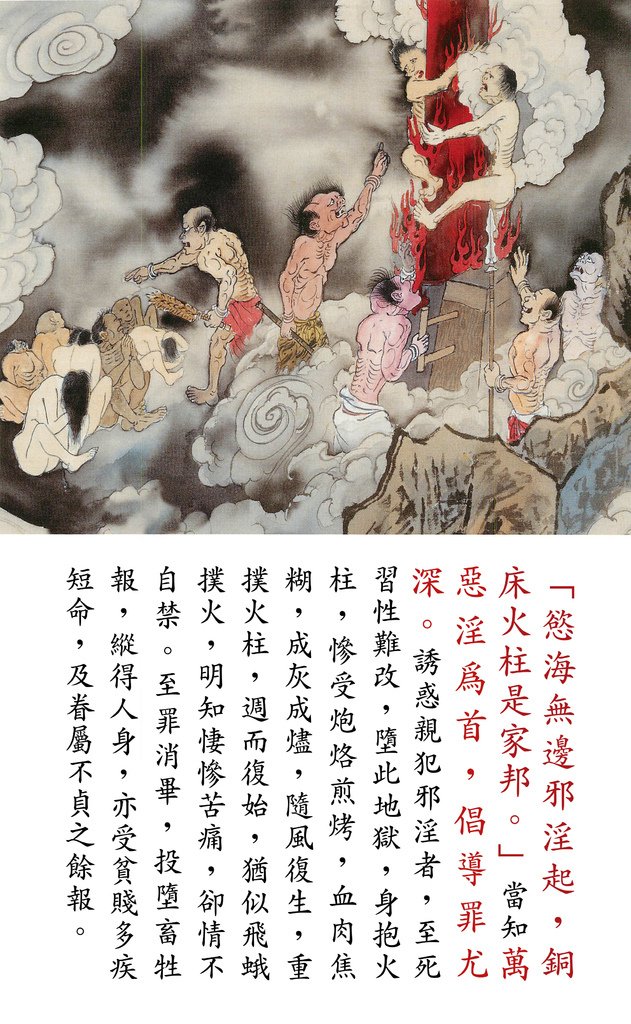 「慾海無邊邪淫起，銅
床火柱是家邦。」當知萬
惡淫爲首，倡導罪尤
深。誘惑親犯邪淫者，至死
習性難改，墮此地獄，身抱火
柱，慘受炮烙煎烤，血肉焦
糊，成灰成燼，隨風復生，重
撲火柱，週而復始，猶似飛蛾
撲火，明知悽慘苦痛，卻情不
自禁。至罪消畢，投墮畜牲
報，縱得人身，亦受貧賤多疾
短命，及眷屬不貞之餘報。